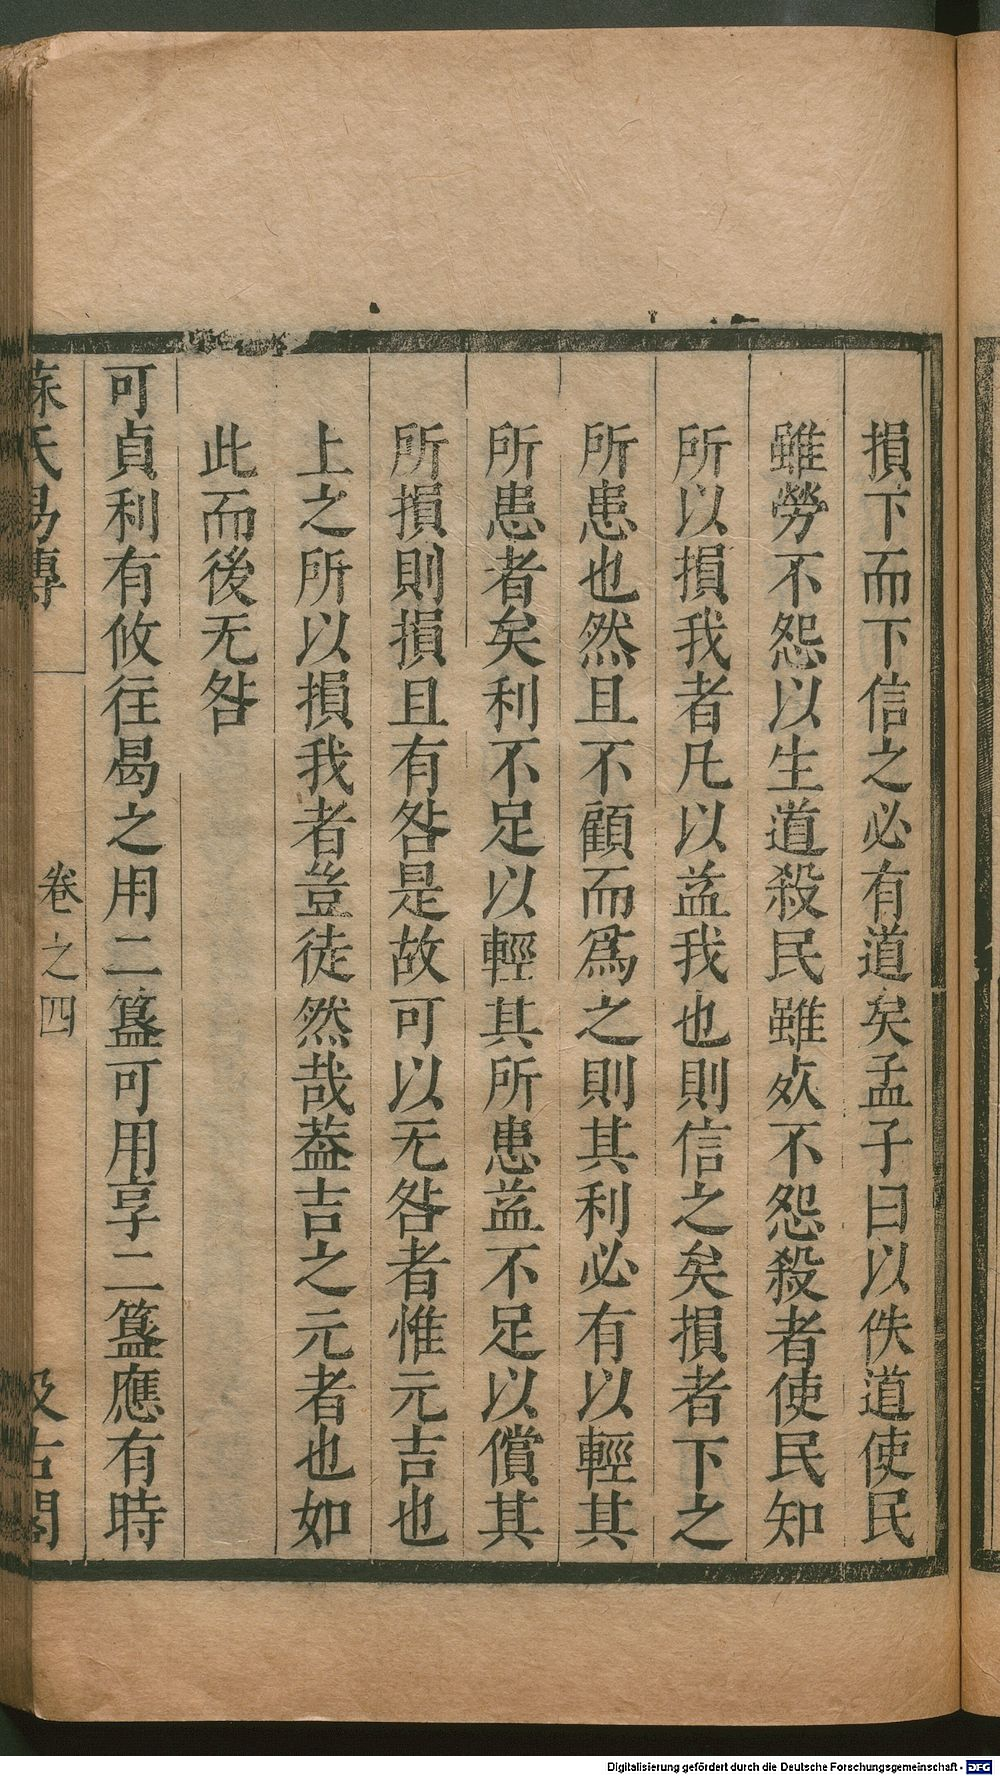 損下而下信之必有道矣孟子曰以佚道使民
雖勞不怨以生道殺民雖死不怨殺者使民知
所以損我者凡以益我也則信之矣損者下之
所患也然且不顧而爲之則其利必有以輕其
所患者矣利不足以輕其所患益不足以償其
所損則損且有咎是故可以无咎者惟元吉也
上之所以損我者豈徒然哉蓋吉之元者也如
此而後无咎
可貞利有攸往曷之用二簋可用享二簋應有時
蘇氏易傳 卷之四 汲古閣
Digitalisierung gefördert durch die Deutsche Forschungsgemeinschaft - DFG